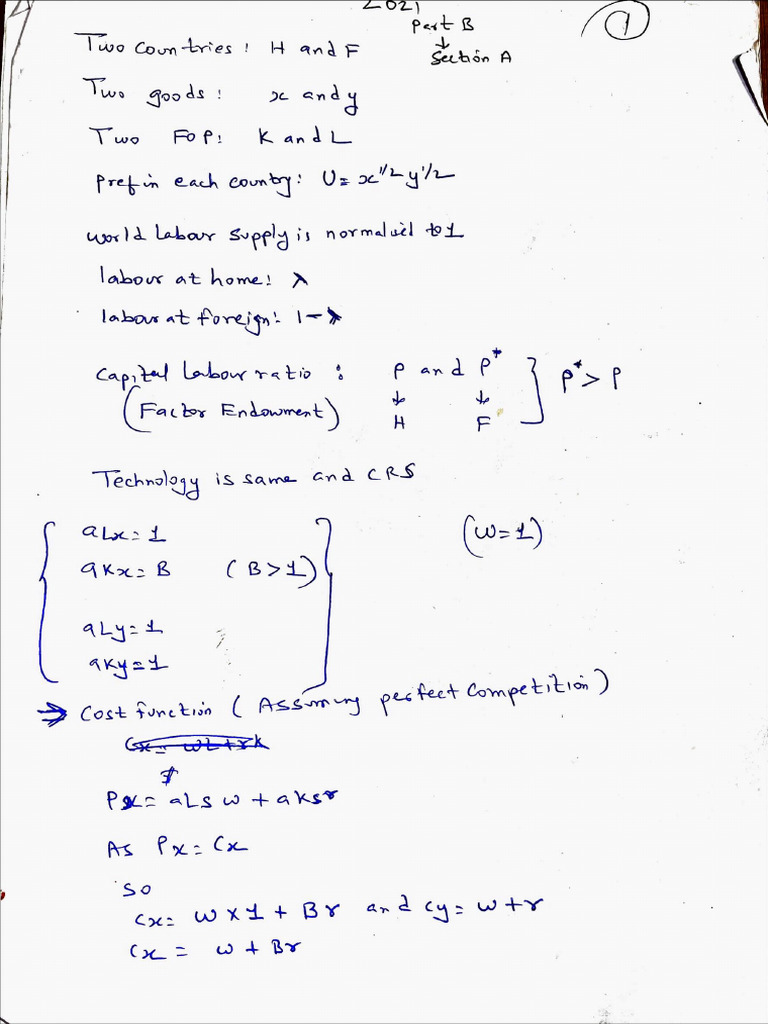 2021
Part B
↓
Section A
1
Two countries: H and F
Two goods: x and y
Two FOP: K and L
Pref in each country: U = x^1/2 y^1/2
World labour supply is normalised to 1
labour at home: λ
labour at foreign: 1-λ
Capital Labour ratio : P and P* } P* > P
(Factor Endowment) H F
Technology is same and CRS
aLx = 1 (w=1)
aKx = B (B>1)
aLy = 1
aKy = 1
⇒ Cost function (Assuming perfect competition)
Cx = wL + rK
Px = aLs w + aKs r
As Px = Cx
so
Cx = w x 1 + Br and Cy = w + r
Cx = w + Br